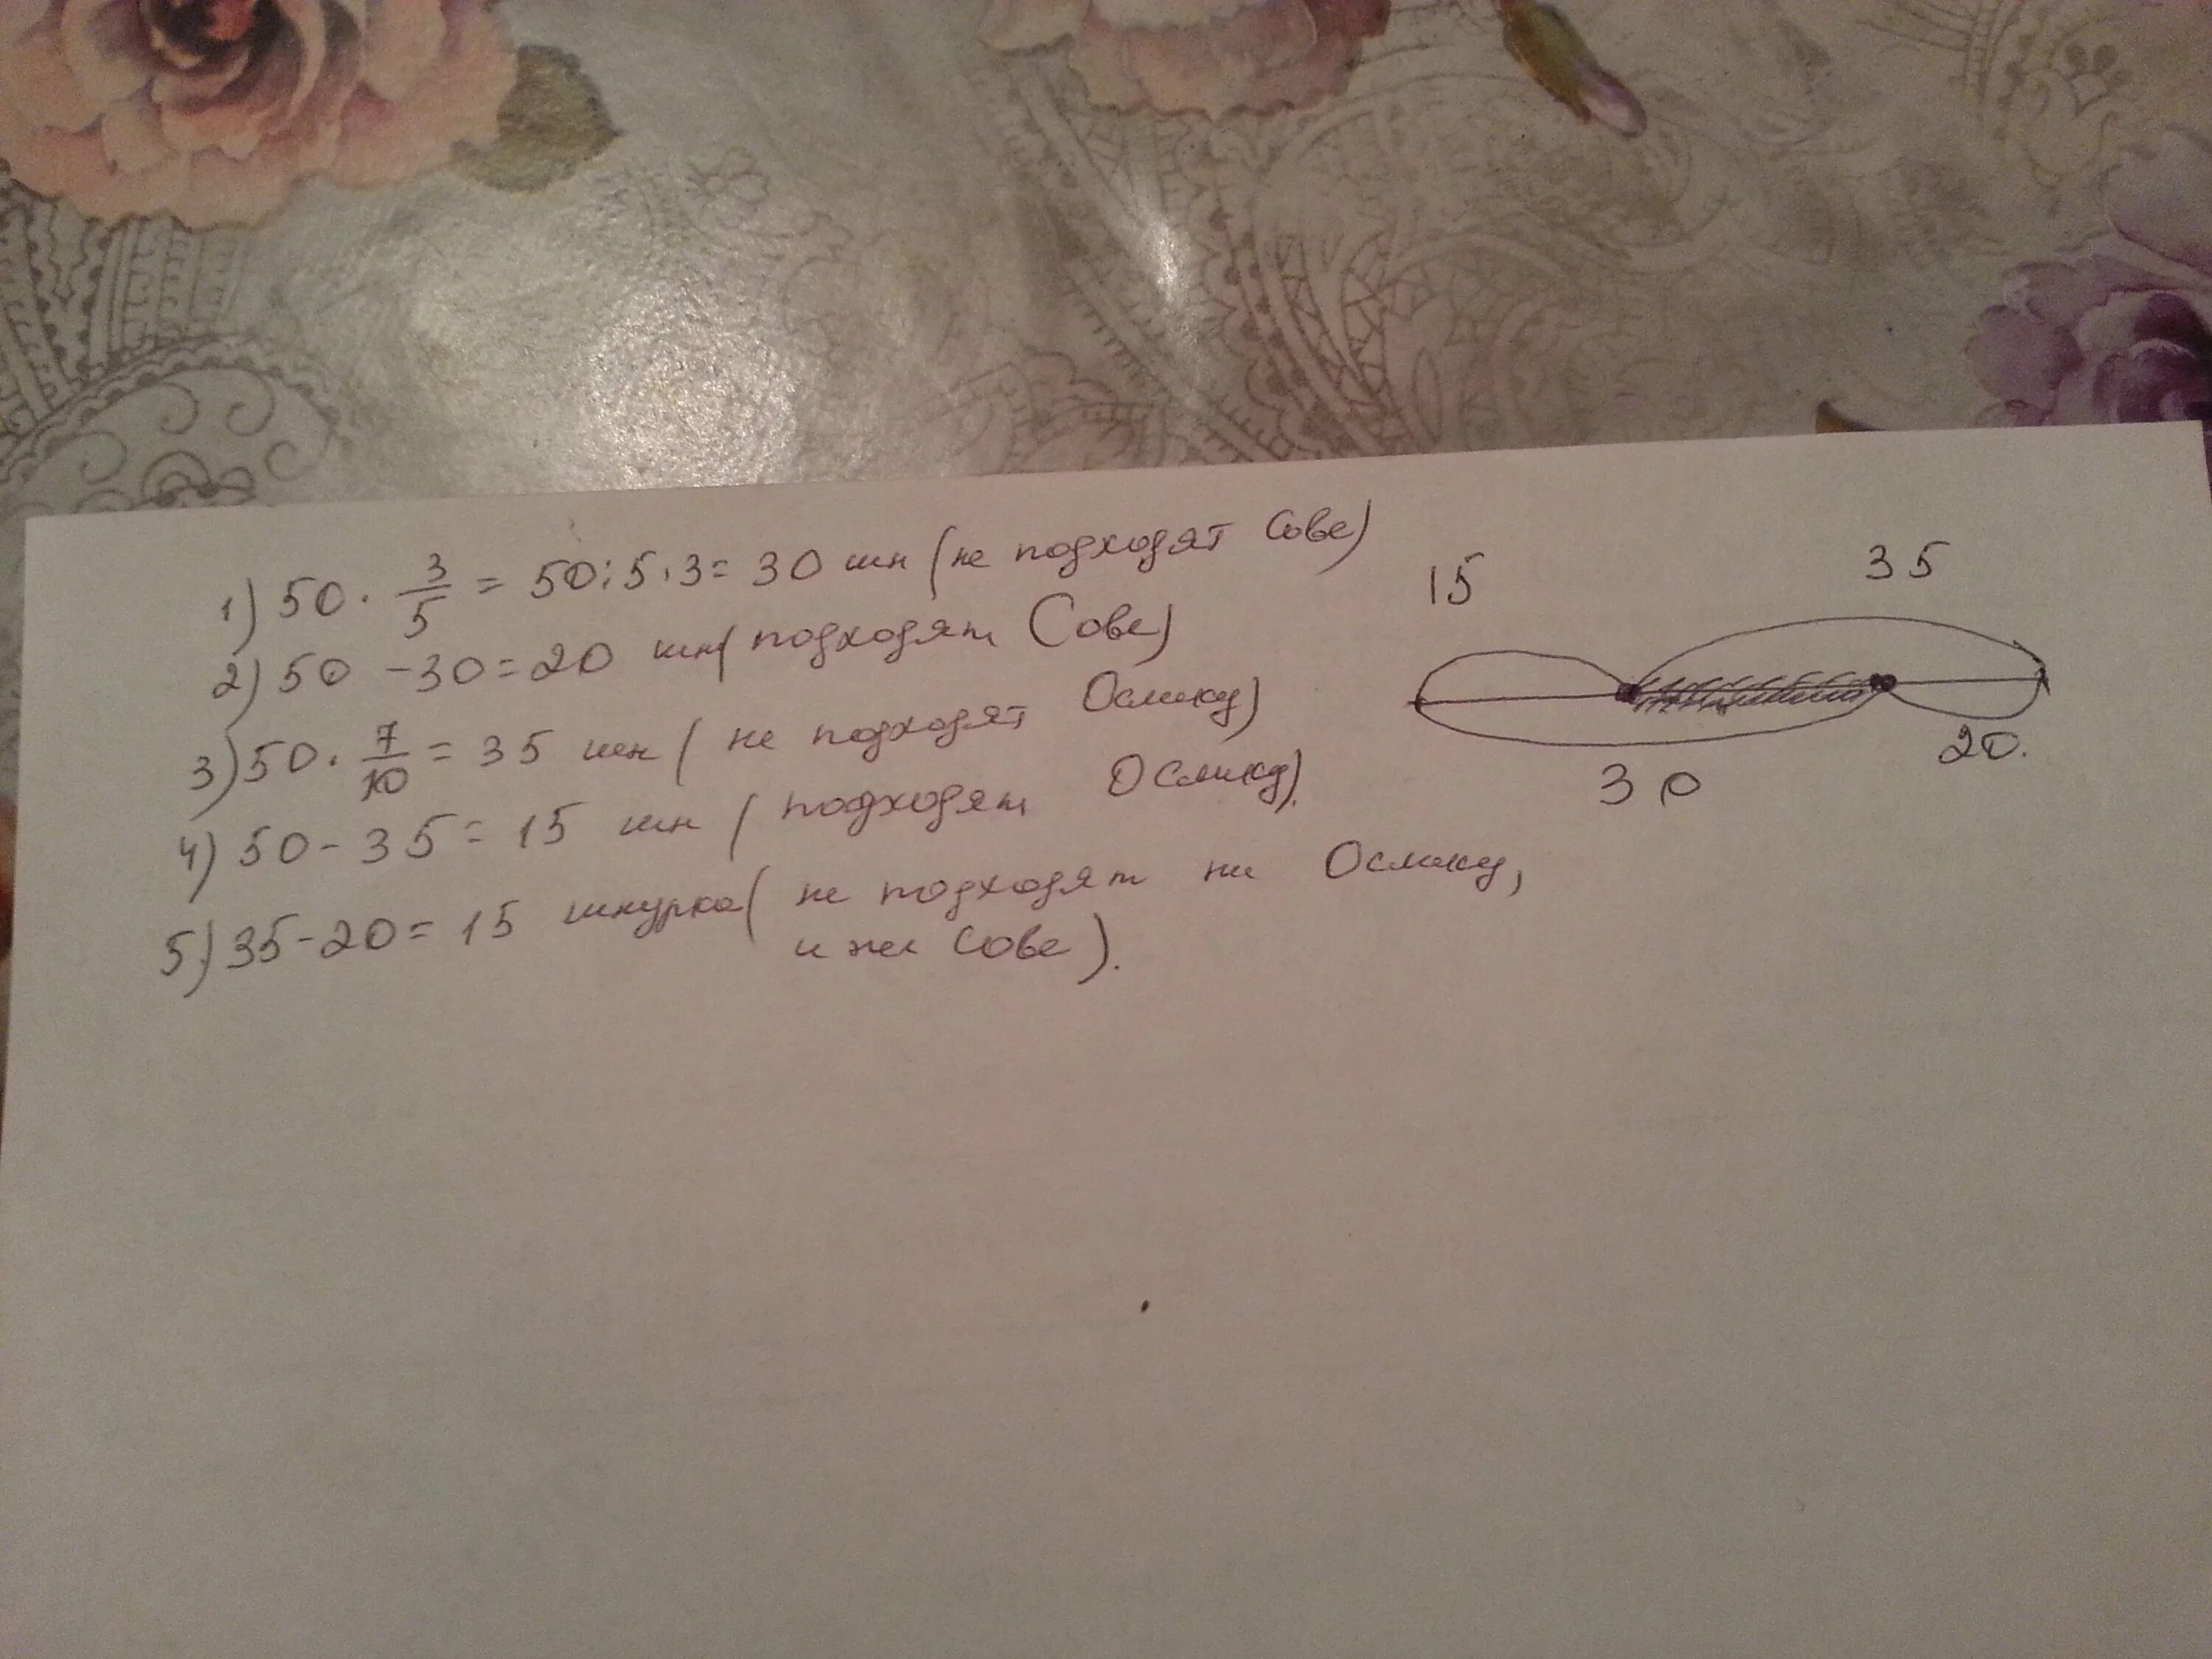 1) 50 · 3/5 = 50:5·3= 30 шн (не подходят Сове)
2) 50 - 30 = 20 шн (подходят Сове)
3) 50 · 7/10 = 35 шн ( не подходят Ослику)
4) 50 - 35 = 15 шн ( подходят Ослику).
5) 35 - 20 = 15 шнурка ( не подходят ни Ослику,
и ни Сове).
15
35
30
20.